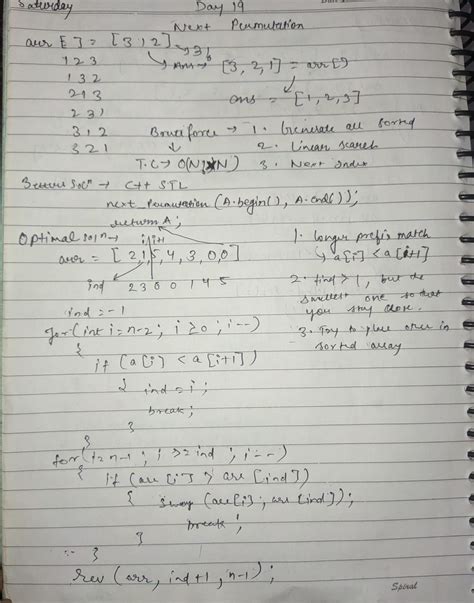 Saturday Day 19
Next Permutation
arr [] = [3 1 2] → 3!
1 2 3 → Ans → [3, 2, 1] = arr[]
1 3 2
2 1 3 ans = [1, 2, 3]
2 3 1
3 1 2 Bruteforce → 1. Generate all sorted
3 2 1 ↓ 2. Linear search
T.C → O(N! × N) 3. Next index
Better Solⁿ → C++ STL
next_Permutation (A.begin(), A.end());
return A;
Optimal solⁿ → i i+1
arr = [2, 1, 5, 4, 3, 0, 0]
ind 2 3 0 0 1 4 5
1. longer prefix match
↳ a[i] < a[i+1]
2. find > 1, but the
smallest one so that
you stay close.
3. Try to place over in
sorted array
ind = -1
for(int i = n-2; i ≥ 0; i--)
{
if (a[i] < a[i+1])
{ ind = i;
break;
}
}
for(i = n-1; i >= ind; i--)
{ if (arr[i] > arr[ind])
{ swap (arr[i], arr[ind]);
break;
}
}
rev (arr, ind+1, n-1);
Spiral